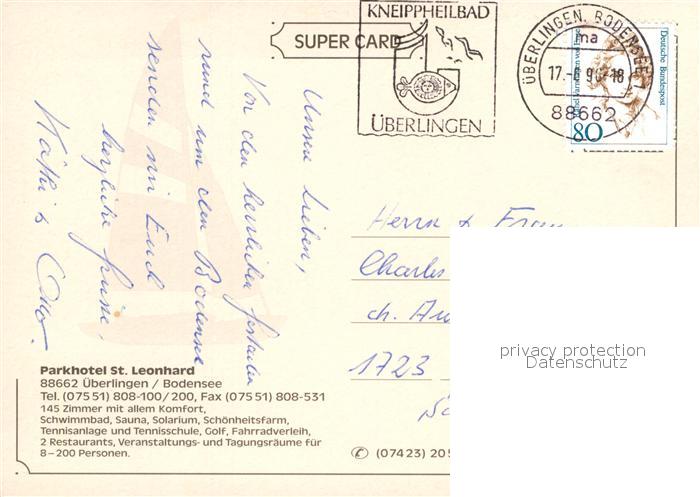 KNEIPPHEILBAD
SUPER CARD
ÜBERLINGEN
ÜBERLINGEN, BODENSEE 1
ma
88662
Deutsche Bundespost
80
Unsere Lieben,
Von den herrlichen
rund um den Bodensee
senden wir Euch
herzliche Grüsse.
Käthi & Otto.
Herrn & Frau
Charles
ch.
1723
privacy protection
Datenschutz
Parkhotel St. Leonhard
88662 Überlingen / Bodensee
Tel. (075 51) 808-100/200, Fax (075 51) 808-531
145 Zimmer mit allem Komfort,
Schwimmbad, Sauna, Solarium, Schönheitsfarm,
Tennisanlage und Tennisschule, Golf, Fahrradverleih,
2 Restaurants, Veranstaltungs- und Tagungsräume für
8–200 Personen.
✆ (07423) 205